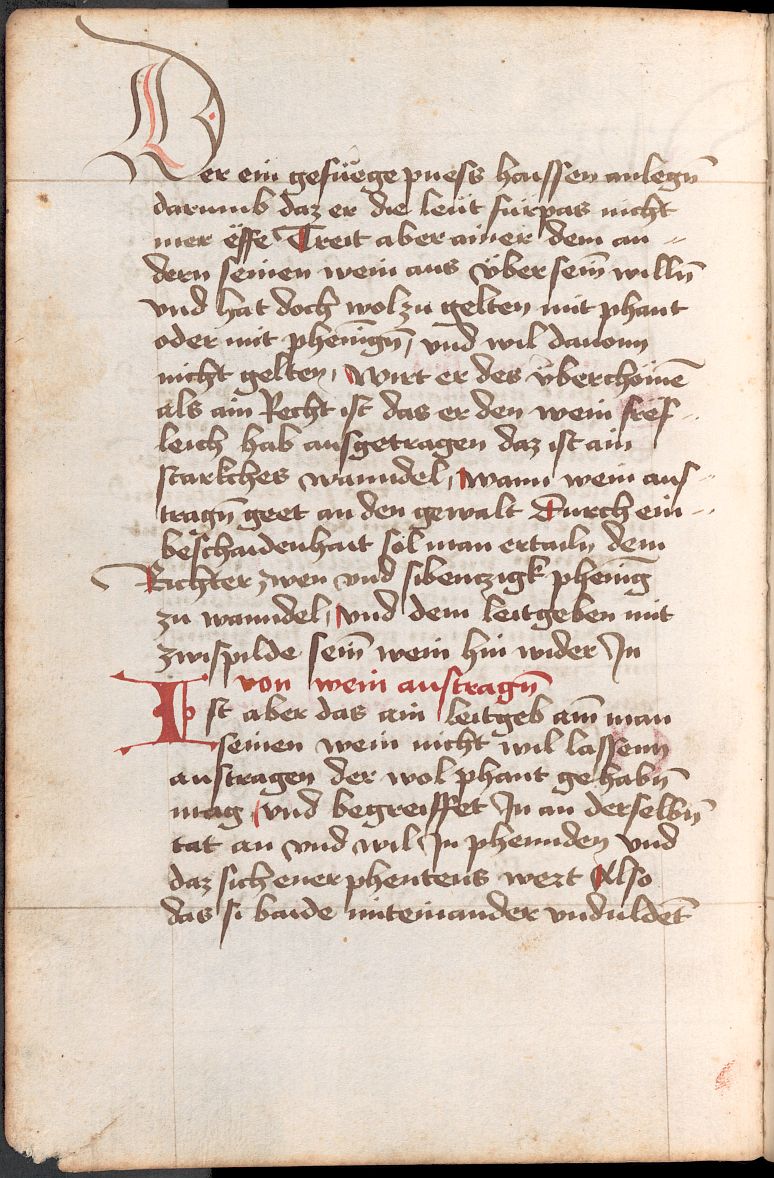 Der ein gefüege puess haissen anlegn̄
darumb daz er die leüt fürpas nicht
mer effe Treit aber ainer dem an-
dern seinen wein aus über sein̄ willn̄
vnd hat doch wol zu gelten mit phant
oder mit phenīgn̄, vnd wil dauonn
nicht gelten, wirt er des überchomē
als ain Recht ist das er den wein fref-
leich hab ausgetragen daz ist ain
starkches wanndel, wann wein aus-
tragn̄ geet an den gewalt Durch ein-
beschaidenhait sol man ertailn dem
Richter zwen vnd sibenczigk phenīg
zu wanndel, vnd dem leitgeben mit
zwispilde sein̄ wein hin wider In
von wein austragn̄
Ist aber das ain leitgeb aim̄ man
seinen wein nicht wil lassenn
austragen der wol phant gehabn̄
mag, vnd begreiffet In an derselbn̄
tat an vnd wil In phennden vnd
daz sich ener phentens wert Also
das si baide miteinander vnduldēt